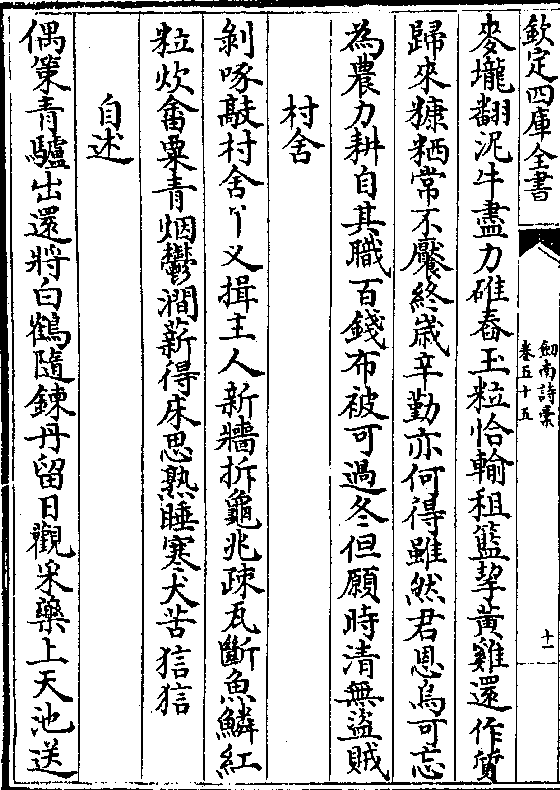 欽定四庫全書
劍南詩槀
卷五十五
十一
麥壠翻泥牛盡力碓舂玉粒恰輸租籃挈黄雞還作質
歸來糠粞常不饜終歲辛勤亦何得雖然君恩烏可忘
為農力耕自其職百錢布被可過冬但願時清無盜賊
村舍
剝啄敲村舍丫义揖主人新牆拆龜兆疎瓦斷魚鱗紅
粒炊畬粟青烟鬱澗薪得床思熟睡寒犬苦狺狺
自述
偶策青驢出還將白鶴隨鍊丹留日觀采藥上天池送